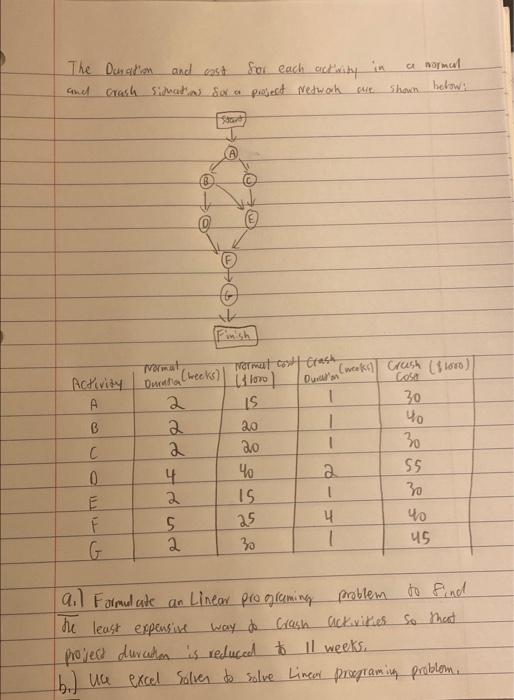 The Duration and cost for each activity in a normal
and crash situations for a project network are shown below:
Start
A
B C
D E
F
G
Finish
Activity Normal Duration (weeks) Normal Cost ($1000) Crash Duration (weeks) Crash ($1000) Cost
A 2 15 1 30
B 2 20 1 40
C 2 20 1 30
D 4 40 2 55
E 2 15 1 30
F 5 25 4 40
G 2 30 1 45
a.) Formulate an Linear programing problem to find
the least expensive way to Crash activities so that
project duration is reduced to 11 weeks.
b.) Use excel Solver to solve Linear programing problem.